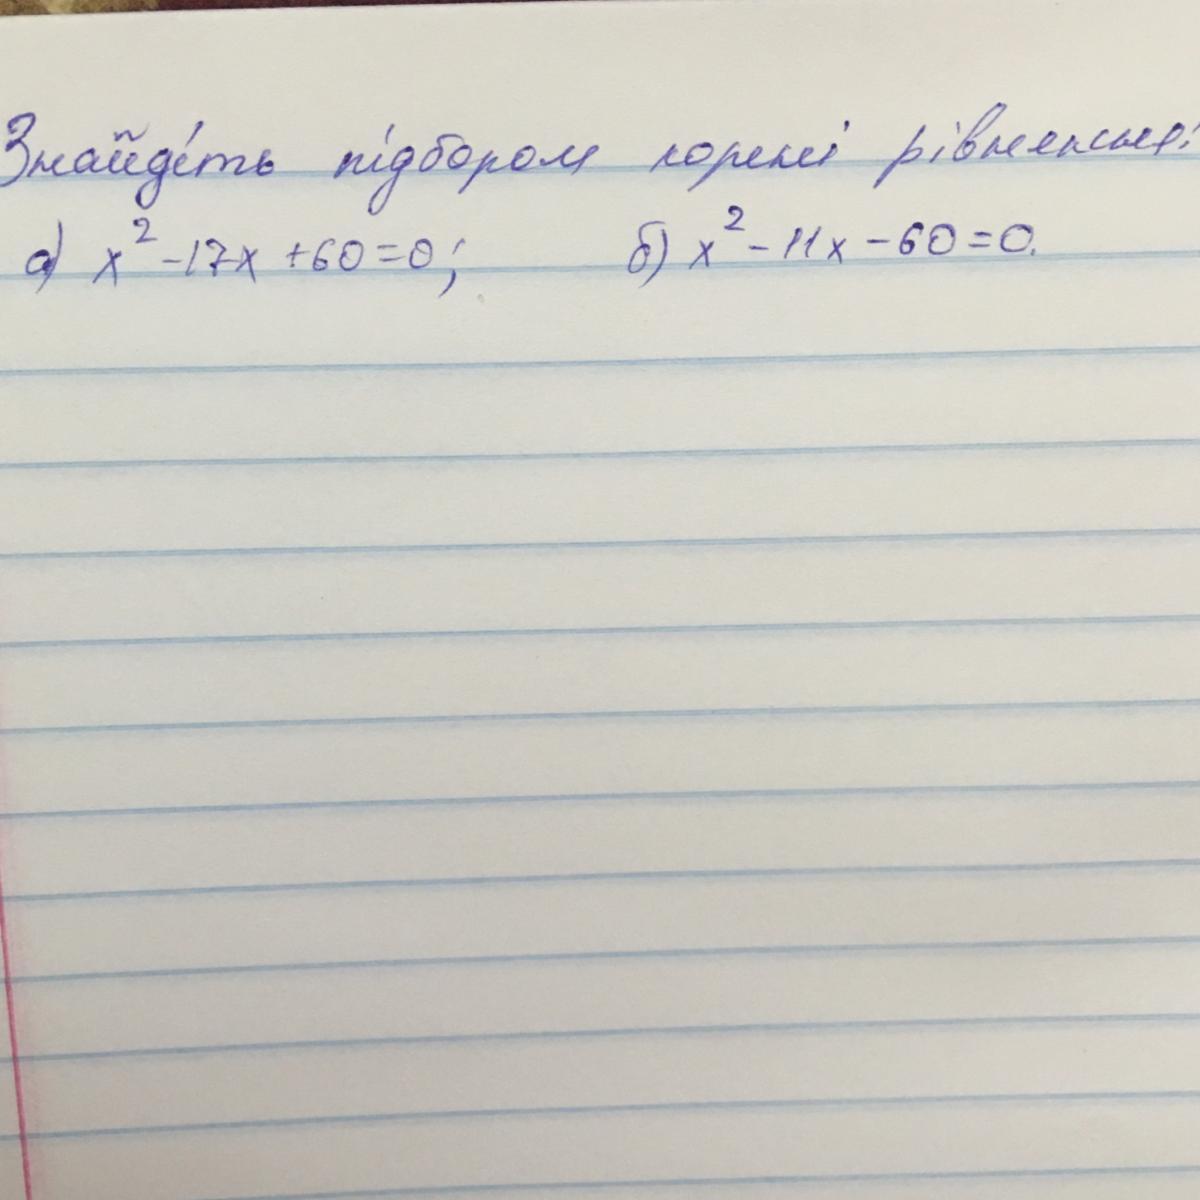 Знайдіть підбором корені рівняння:
а) x² - 17x + 60 = 0; б) x² - 11x - 60 = 0.